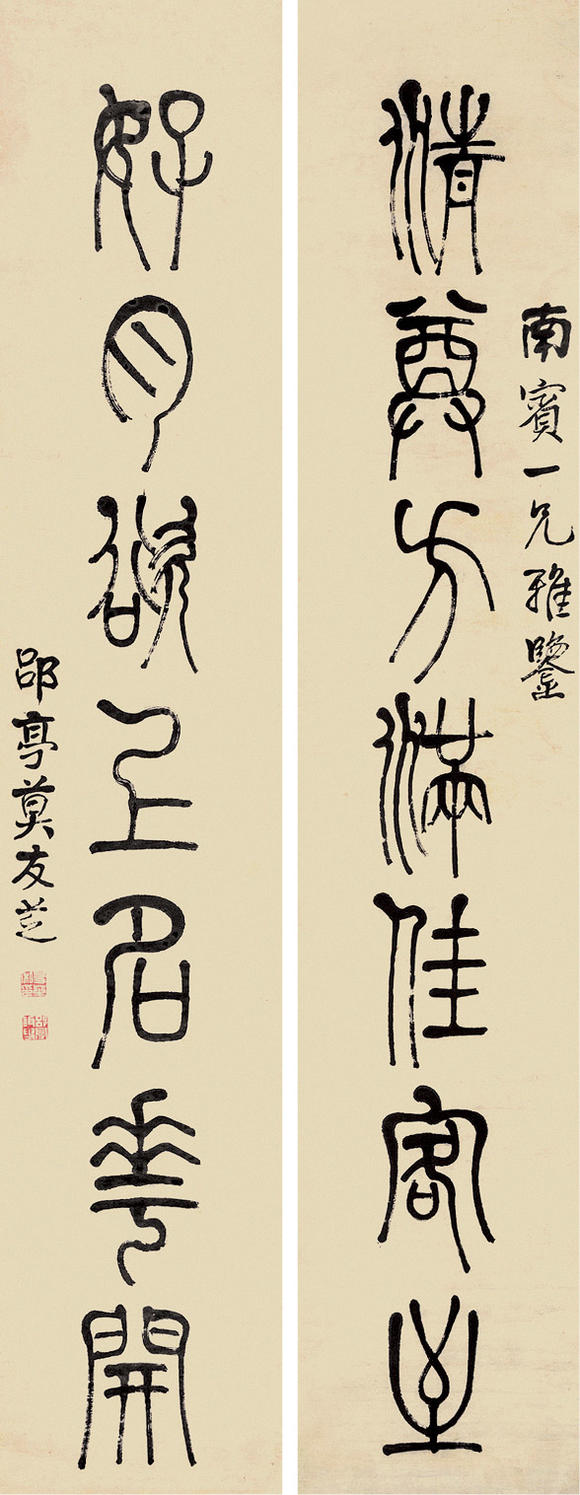 南賓一兄雅鑒
清尊方滿佳客至
好月欲上名華開
郘亭莫友芝